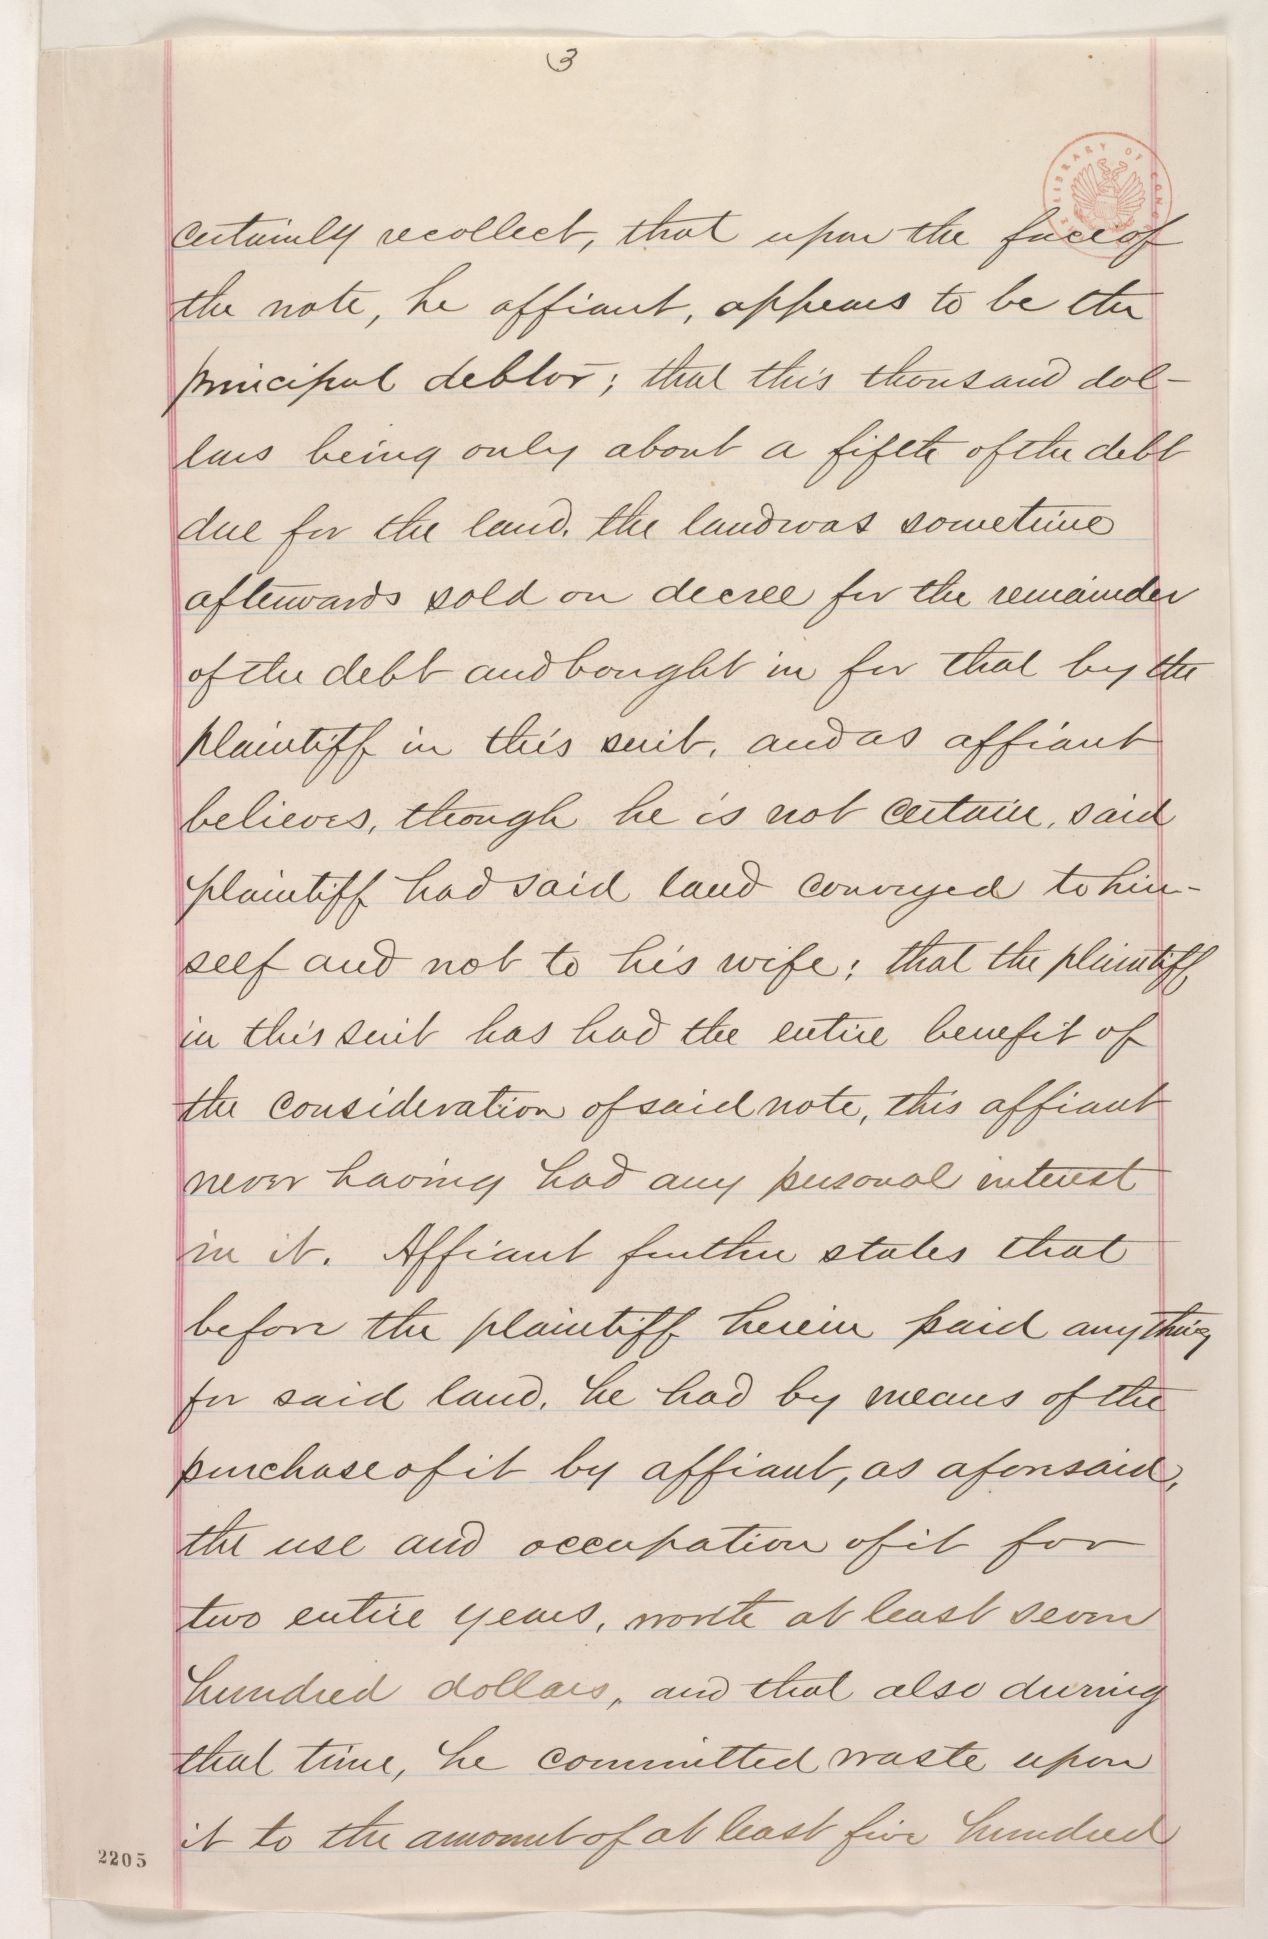 3
LIBRARY OF CONG
certainly recollect, that upon the face of
the note, he affiant, appears to be the
principal debtor; that this thousand dol-
lars being only about a fifth of the debt
due for the land. the land was sometime
afterwards sold on decree for the remainder
of the debt and bought in for that by the
plaintiff in this suit, and as affiant
believes, though he is not certain, said
plaintiff had said land conveyed to him-
self and not to his wife; that the plaintiff
in this suit has had the entire benefit of
the consideration of said note, this affiant
never having had any personal interest
in it. Affiant further states that
before the plaintiff herein paid anything
for said land, he had by means of the
purchase of it by affiant, as aforesaid,
the use and occupation of it for
two entire years, worth at least seven
hundred dollars, and that also during
that time, he committed waste upon
it to the amount of at least five hundred
2205